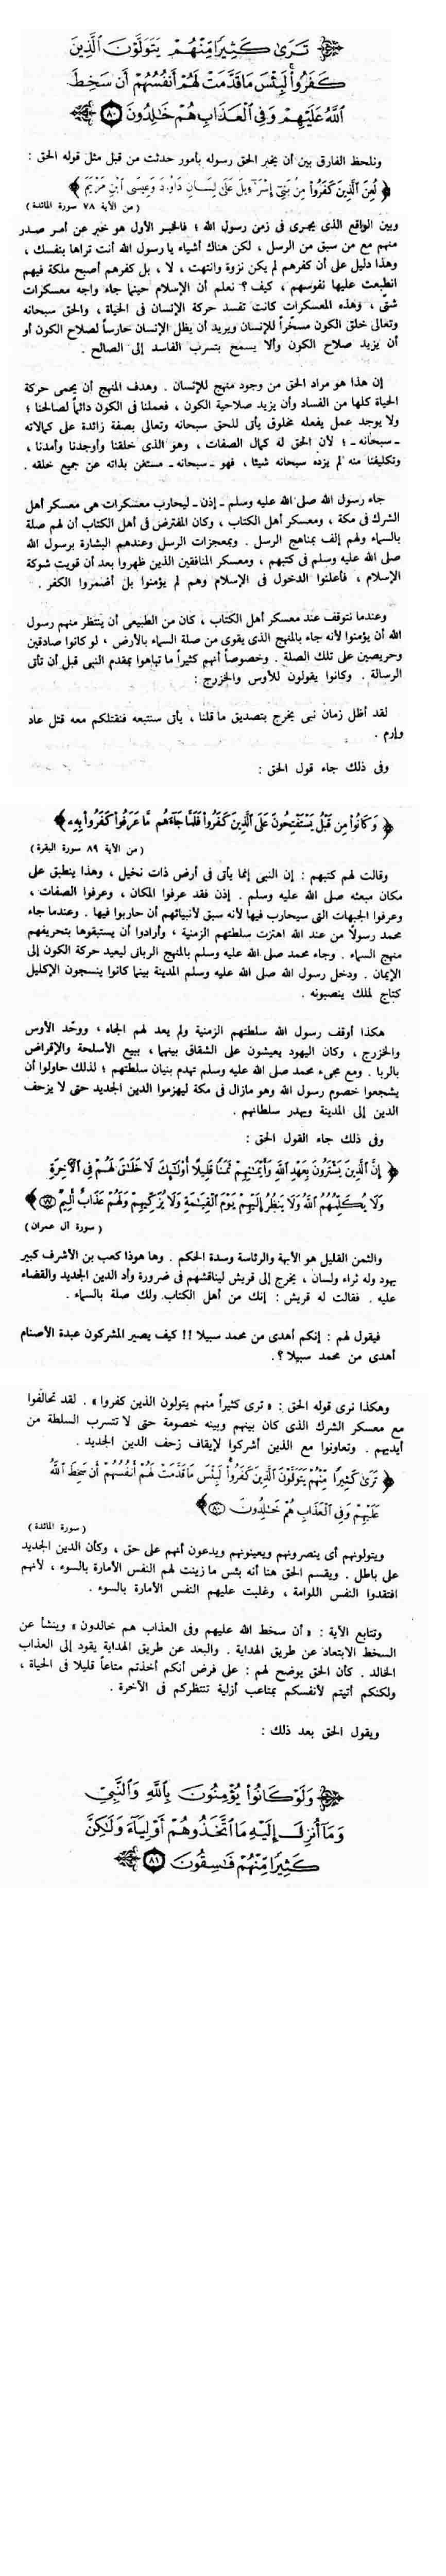 تَرَىٰ كَثِيرًا مِّنْهُمْ يَتَوَلَّوْنَ الَّذِينَ
كَفَرُوا لَبِئْسَ مَا قَدَّمَتْ لَهُمْ أَنفُسُهُمْ أَن سَخِطَ
اللَّهُ عَلَيْهِمْ وَفِي الْعَذَابِ هُمْ خَالِدُونَ ٨٠
ونلحظ الفارق بين أن يخبر الحق رسوله بأمور حدثت من قبل مثل قوله الحق :
﴿ لُعِنَ الَّذِينَ كَفَرُوا مِن بَنِي إِسْرَائِيلَ عَلَىٰ لِسَانِ دَاوُدَ وَعِيسَى ابْنِ مَرْيَمَ ﴾
( من الآية ٧٨ سورة المائدة )
وبين الواقع الذى يجرى فى زمن رسول الله ؛ فالخبر الأول هو خبر عن أمر صدر
منهم مع من سبق من الرسل ، لكن هناك أشياء يا رسول الله أنت تراها بنفسك ،
وهذا دليل على أن كفرهم لم يكن نزوة وانتهت ، لا ، بل كفرهم أصبح ملكة فيهم
انطبعت عليها نفوسهم ، كيف ؟ نعلم أن الإسلام حينما جاء واجه معسكرات
شتى ، وهذه المعسكرات كانت تفسد حركة الإنسان فى الحياة ، والحق سبحانه
وتعالى خلق الكون مسخّراً للإنسان ويريد أن يظل الإنسان حارساً لصلاح الكون أو
أن يزيد صلاح الكون وألا يسمح بتسرب الفاسد إلى الصالح .
إن هذا هو مراد الحق من وجود منهج للإنسان . وهدف المنهج أن يحمى حركة
الحياة كلها من الفساد وأن يزيد صلاحية الكون ، فعملنا فى الكون دائماً لصالحنا ؛
ولا يوجد عمل يفعله مخلوق يأتى للحق سبحانه وتعالى بصفة زائدة على كمالاته
ـ سبحانه ـ ؛ لأن الحق له كمال الصفات ، وهو الذى خلقنا وأوجدنا وأمدنا ،
وتكليفنا منه لم يزده سبحانه شيئا ، فهو ـ سبحانه ـ مستغن بذاته عن جميع خلقه .
جاء رسول الله صلى الله عليه وسلم ـ إذن ـ ليحارب معسكرات هى معسكر أهل
الشرك فى مكة ، ومعسكر أهل الكتاب ، وكان المفترض فى أهل الكتاب أن لهم صلة
بالسماء ولهم إلف بمناهج الرسل . وبمعجزات الرسل وعندهم البشارة برسول الله
صلى الله عليه وسلم فى كتبهم ، ومعسكر المنافقين الذين ظهروا بعد أن قويت شوكة
الإسلام ، فأعلنوا الدخول فى الإسلام وهم لم يؤمنوا بل أضمروا الكفر .
وعندما نتوقف عند معسكر أهل الكتاب ، كان من الطبيعى أن ينتظر منهم رسول
الله أن يؤمنوا لأنه جاء بالمنهج الذى يقوى من صلة السماء بالأرض ، لو كانوا صادقين
وحريصين على تلك الصلة . وخصوصاً أنهم كثيراً ما تباهوا بمقدم النبى قبل أن تأتى
الرسالة . وكانوا يقولون للأوس والخزرج :
لقد أظل زمان نبى يخرج بتصديق ما قلنا ، يأتى سنتبعه فنقتلكم معه قتل عاد
وإرم .
وفى ذلك جاء قول الحق :
﴿ وَكَانُوا مِن قَبْلُ يَسْتَفْتِحُونَ عَلَى الَّذِينَ كَفَرُوا فَلَمَّا جَاءَهُم مَّا عَرَفُوا كَفَرُوا بِهِ ﴾
( من الآية ٨٩ سورة البقرة )
وقالت لهم كتبهم : إن النبى إنما يأتى فى أرض ذات نخيل ، وهذا ينطبق على
مكان مبعثه صلى الله عليه وسلم . إذن فقد عرفوا المكان ، وعرفوا الصفات ،
وعرفوا الجبهات التى سيحارب فيها لأنه سبق لأنبيائهم أن حاربوا فيها . وعندما جاء
محمد رسولاً من عند الله اهتزت سلطتهم الزمنية ، وأرادوا أن يستبقوها بتحريفهم
منهج السماء . وجاء محمد صلى الله عليه وسلم بالمنهج الربانى ليعيد حركة الكون إلى
الإيمان . ودخل رسول الله صلى الله عليه وسلم المدينة بينما كانوا ينسجون الإكليل
كتاج لملك ينصبونه .
هكذا أوقف رسول الله سلطتهم الزمنية ولم يعد لهم الجاه ، ووحّد الأوس
والخزرج ، وكان اليهود يعيشون على الشقاق بينهما ، ببيع الأسلحة والإقراض
بالربا . ومع مجىء محمد صلى الله عليه وسلم تهدم بنيان سلطتهم ؛ لذلك حاولوا أن
يشجعوا خصوم رسول الله وهو مازال فى مكة ليهزموا الدين الجديد حتى لا يزحف
الدين إلى المدينة ويهدر سلطانهم .
وفى ذلك جاء القول الحق :
﴿ إِنَّ الَّذِينَ يَشْتَرُونَ بِعَهْدِ اللَّهِ وَأَيْمَانِهِمْ ثَمَنًا قَلِيلًا أُولَٰئِكَ لَا خَلَاقَ لَهُمْ فِي الْآخِرَةِ
وَلَا يُكَلِّمُهُمُ اللَّهُ وَلَا يَنظُرُ إِلَيْهِمْ يَوْمَ الْقِيَامَةِ وَلَا يُزَكِّيهِمْ وَلَهُمْ عَذَابٌ أَلِيمٌ ٧٧ ﴾
( سورة آل عمران )
والثمن القليل هو الأبهة والرئاسة وسدة الحكم . وها هوذا كعب بن الأشرف كبير
يهود وله ثراء ولسان ، يخرج إلى قريش ليناقشهم فى ضرورة وأد الدين الجديد والقضاء
عليه . فقالت له قريش : إنك من أهل الكتاب ولك صلة بالسماء .
فيقول لهم : إنكم أهدى من محمد سبيلا !! كيف يصير المشركون عبدة الأصنام
أهدى من محمد سبيلا ؟.
وهكذا نرى قوله الحق : « ترى كثيراً منهم يتولون الذين كفروا » . لقد تحالفوا
مع معسكر الشرك الذى كان بينهم وبينه خصومة حتى لا تتسرب السلطة من
أيديهم . وتعاونوا مع الذين أشركوا لإيقاف زحف الدين الجديد .
﴿ تَرَىٰ كَثِيرًا مِّنْهُمْ يَتَوَلَّوْنَ الَّذِينَ كَفَرُوا لَبِئْسَ مَا قَدَّمَتْ لَهُمْ أَنفُسُهُمْ أَن سَخِطَ اللَّهُ
عَلَيْهِمْ وَفِي الْعَذَابِ هُمْ خَالِدُونَ ٨٠ ﴾
( سورة المائدة )
ويتولونهم أى ينصرونهم ويعينونهم ويدعون أنهم على حق ، وكأن الدين الجديد
على باطل . ويقسم الحق هنا أنه بئس ما زينت لهم النفس الأمارة بالسوء ، لأنهم
افتقدوا النفس اللوامة ، وغلبت عليهم النفس الأمارة بالسوء .
وتتابع الآية : « أن سخط الله عليهم وفى العذاب هم خالدون » وينشأ عن
السخط الابتعاد عن طريق الهداية . والبعد عن طريق الهداية يقود إلى العذاب
الخالد . كأن الحق يوضح لهم : على فرض أنكم أخذتم متاعاً قليلا فى الحياة ،
ولكنكم أتيتم لأنفسكم بمتاعب أزلية تنتظركم فى الآخرة .
ويقول الحق بعد ذلك :
وَلَوْ كَانُوا يُؤْمِنُونَ بِاللَّهِ وَالنَّبِيِّ
وَمَا أُنزِلَ إِلَيْهِ مَا اتَّخَذُوهُمْ أَوْلِيَاءَ وَلَٰكِنَّ
كَثِيرًا مِّنْهُمْ فَاسِقُونَ ٨١